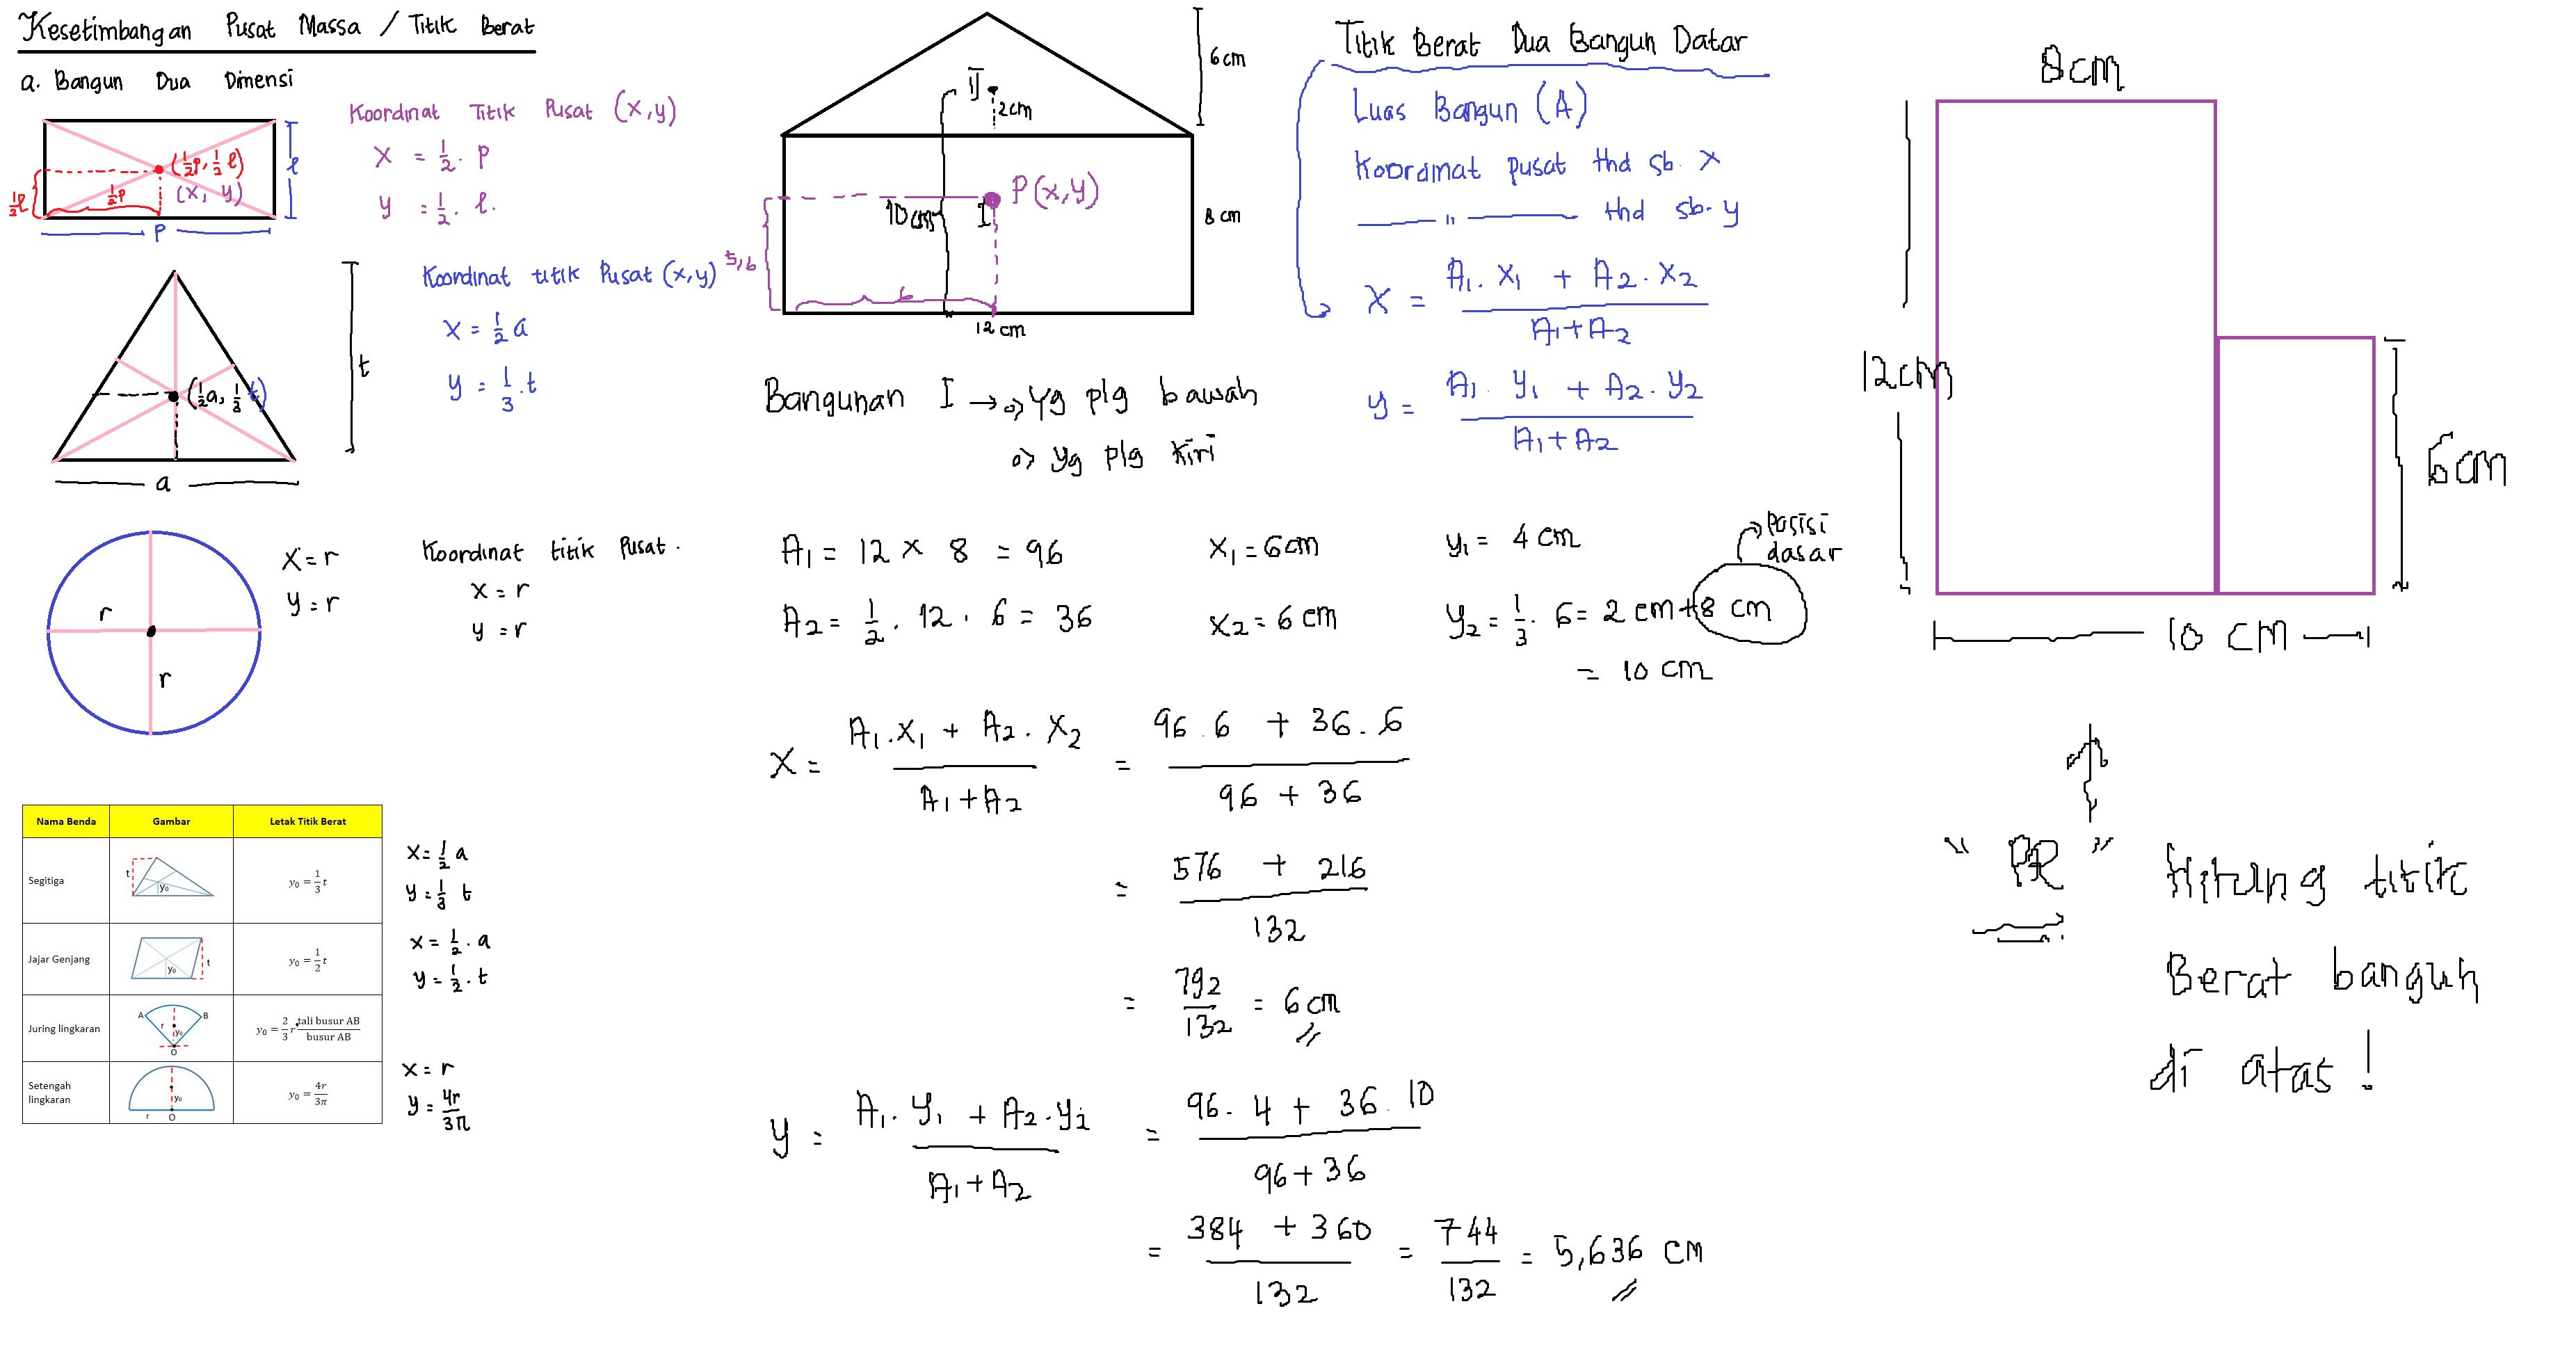 Kesetimbangan Pusat Massa / Titik Berat
a. Bangun Dua Dimensi
(½p, ½ l)
(x, y)
½l
½p
l
p
Koordinat Titik Pusat (x,y)
x = ½ . p
y = ½ . l.
(½a, ⅓ t)
t
a
Koordinat titik Pusat (x,y)
x = ½ a
y = ⅓ . t
r
r
x = r
y = r
Koordinat titik Pusat.
x = r
y = r
Nama Benda Gambar Letak Titik Berat
Segitiga t y₀ y₀ = 1/3 t
x = ½ a
y = ⅓ t
Jajar Genjang y₀ t y₀ = 1/2 t
x = ½ . a
y = ½ . t
Juring lingkaran A B r y₀ O y₀ = 2/3 r tali busur AB / busur AB
Setengah lingkaran y₀ r O y₀ = 4r/3π
x = r
y = 4r/3π
II
2cm
6cm
10cm
I
P(x,y)
8cm
5,6
6
12cm
Bangunan I → => yg plg bawah
=> yg plg kiri
Titik Berat Dua Bangun Datar
Luas Bangun (A)
Koordinat pusat thd sb. x
—— " —— thd sb. y
x = A₁. x₁ + A₂. x₂ / A₁+A₂
y = A₁. y₁ + A₂. y₂ / A₁+A₂
A₁ = 12 × 8 = 96 x₁ = 6cm y₁ = 4cm
posisi dasar
A₂ = ½ . 12 . 6 = 36 x₂ = 6cm y₂ = ⅓ . 6 = 2 cm + 8 cm
= 10 cm
x = A₁.x₁ + A₂.x₂ / A₁+A₂ = 96.6 + 36.6 / 96 + 36
= 576 + 216 / 132
= 792/132 = 6cm
y = A₁. y₁ + A₂.y₂ / A₁+A₂ = 96. 4 + 36.10 / 96+36
= 384 + 360 / 132 = 744/132 = 5,636 cm
8cm
12cm
6cm
10 cm
" PR " Hitung titik
Berat bangun
di atas !